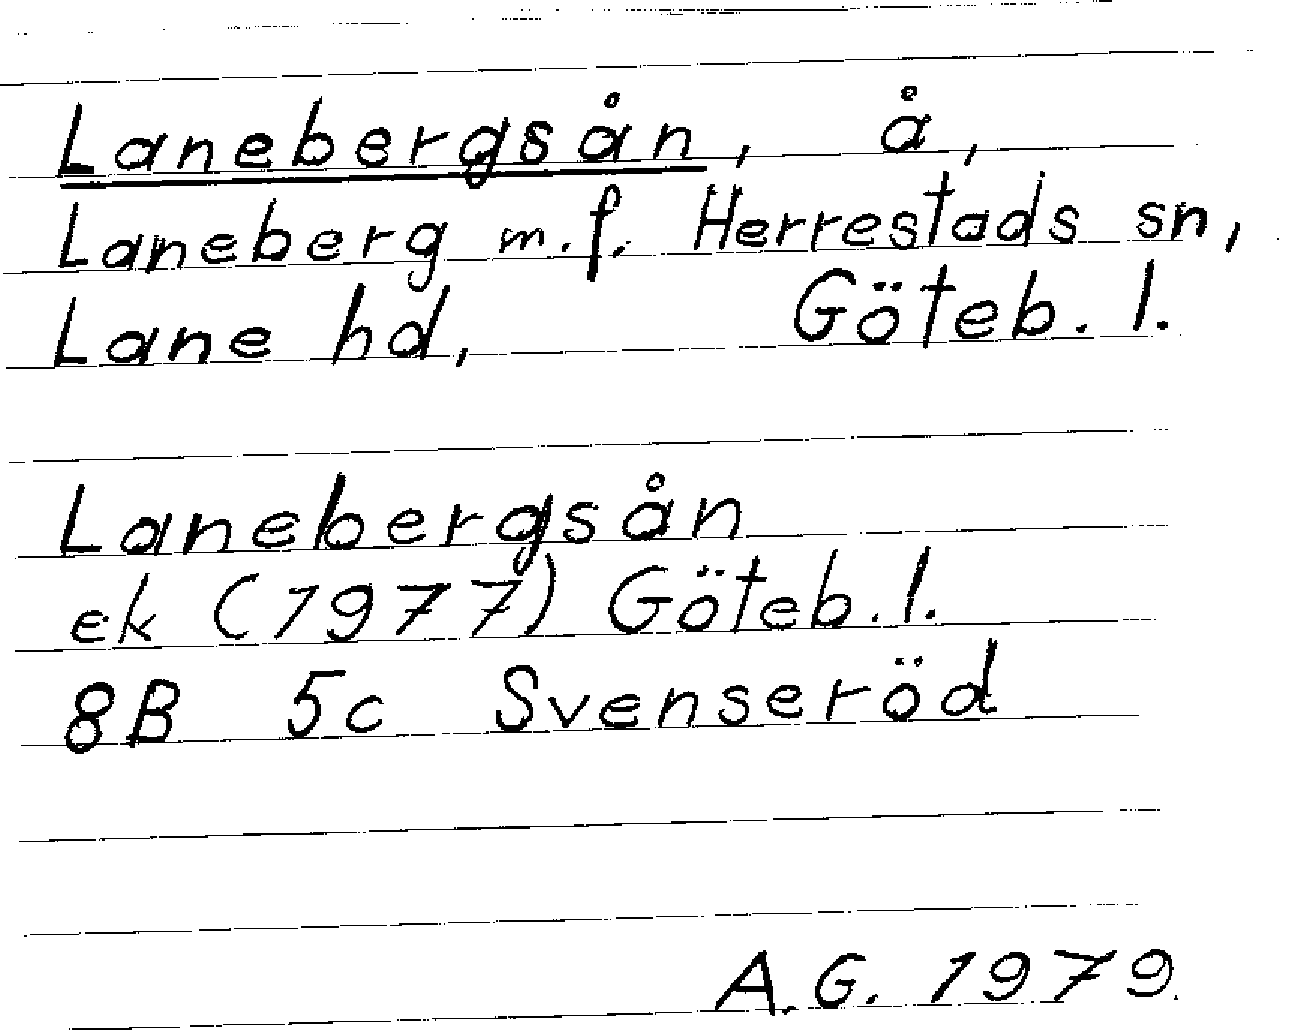 Lanebergsån, å,
Laneberg m.f. Herrestads sn,
Lane hd, Göteb. l.
Lanebergsån
ek (1977) Göteb. l.
8B 5c Svenseröd
A.G. 1979.